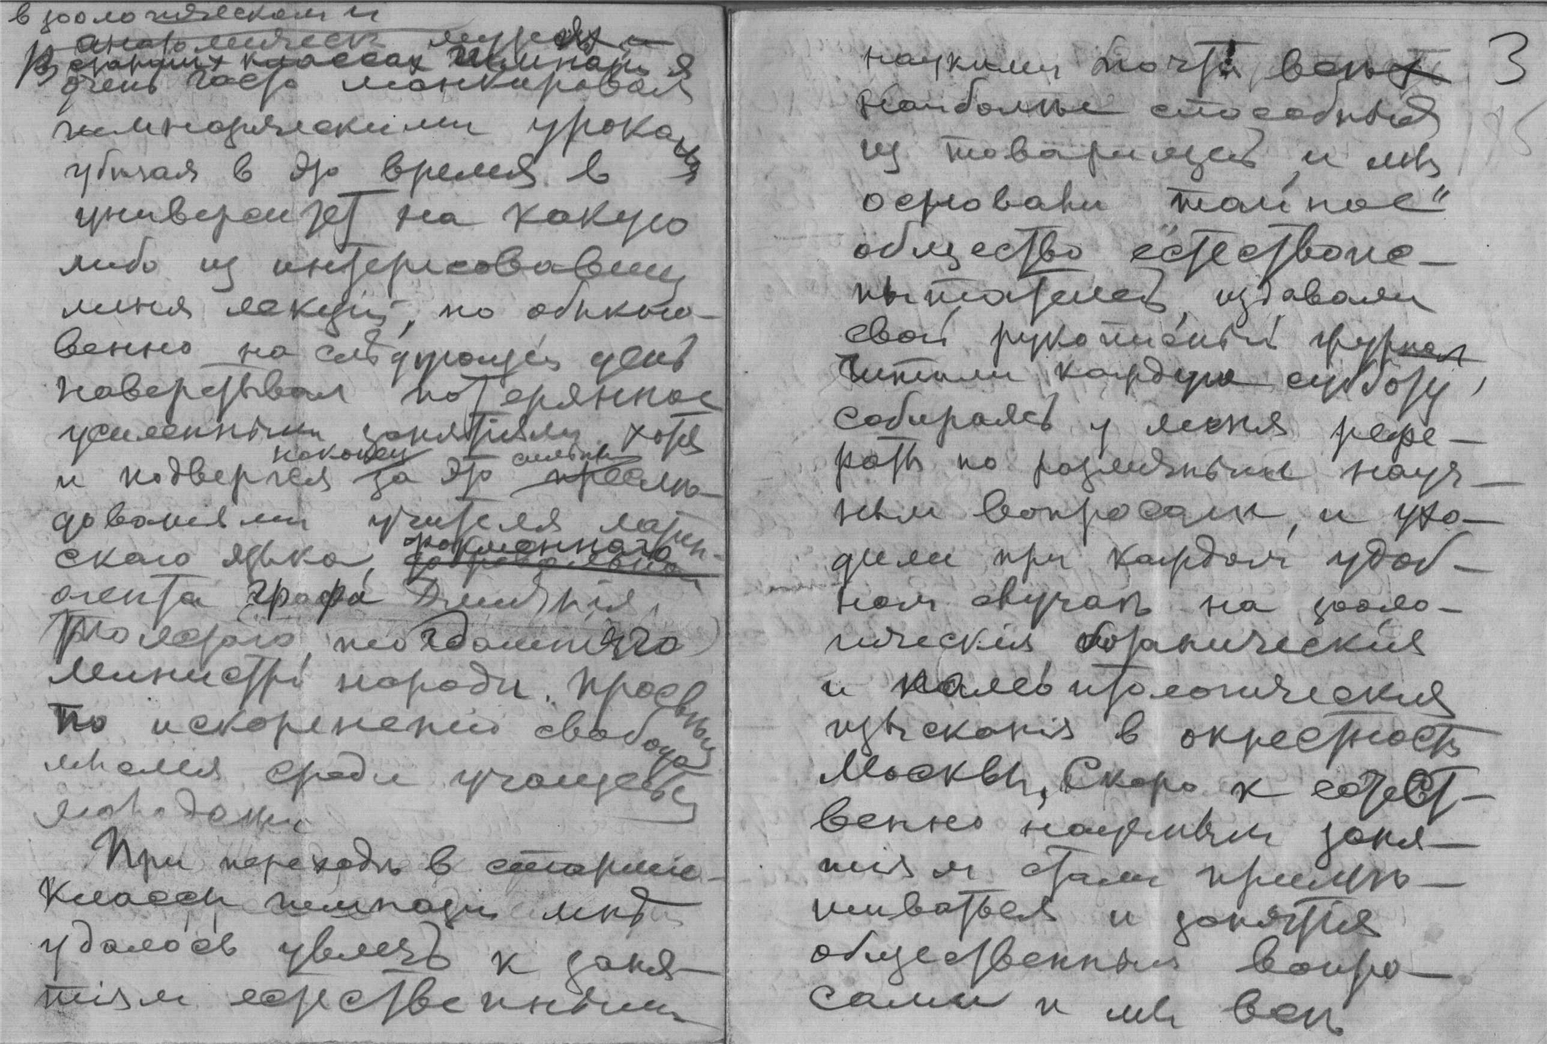 в зоологическом и
анатомическ музеях
В старших классах гимназии я
очень часто манкировал
гимназическими уроками
убегая в это время в
университет на какую
либо из интересовавших
меня лекций, но обыкно-
венно на следующей день
наверстывал потерянное
усиленными занятиями, хотя
и подвергся наконец за это сильным преслѣ-
дованіям учителя латин-
скаго языка,
агента графа Дмитрія
Толстого, тогдашняго
министра народн. просв.
по искорененію свободных
мыслей среди учащейся
молодежи
При переходѣ в старшіе
классы гимназіи мнѣ
удалось увлечь к заня-
тіям естественными
науками почти всѣх 3
наиболѣе способных
из товарищей, и мы
основали "тайное"
общество естествоис-
пытателей, издавали
свой рукописный журнал
читали каждую субботу,
собираясь у меня рефе-
раты по различным науч-
ным вопросам, и ухо-
дили при каждом удоб-
ном случаѣ на зооло-
гическія, ботаническія
и палеонтологическія
изысканія в окрестность
Москвы. Скоро к естест-
венно научным заня-
тіям стали примѣ-
шиваться и занятія
общественными вопро-
сами и мы всѣ